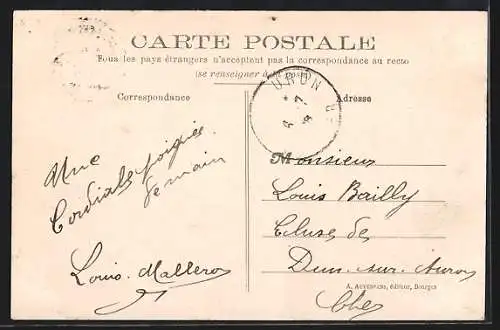 CARTE POSTALE
Tous les pays étrangers n'acceptent pas la correspondance au recto
(se renseigner à la poste)
Correspondance
Adresse
Une
Cordiale poignée
de main
Louis Mallero
Monsieur
Louis Bailly
Ecluse de
Dun-sur-Auron
Cher
A. Auxenfans, éditeur, Bourges